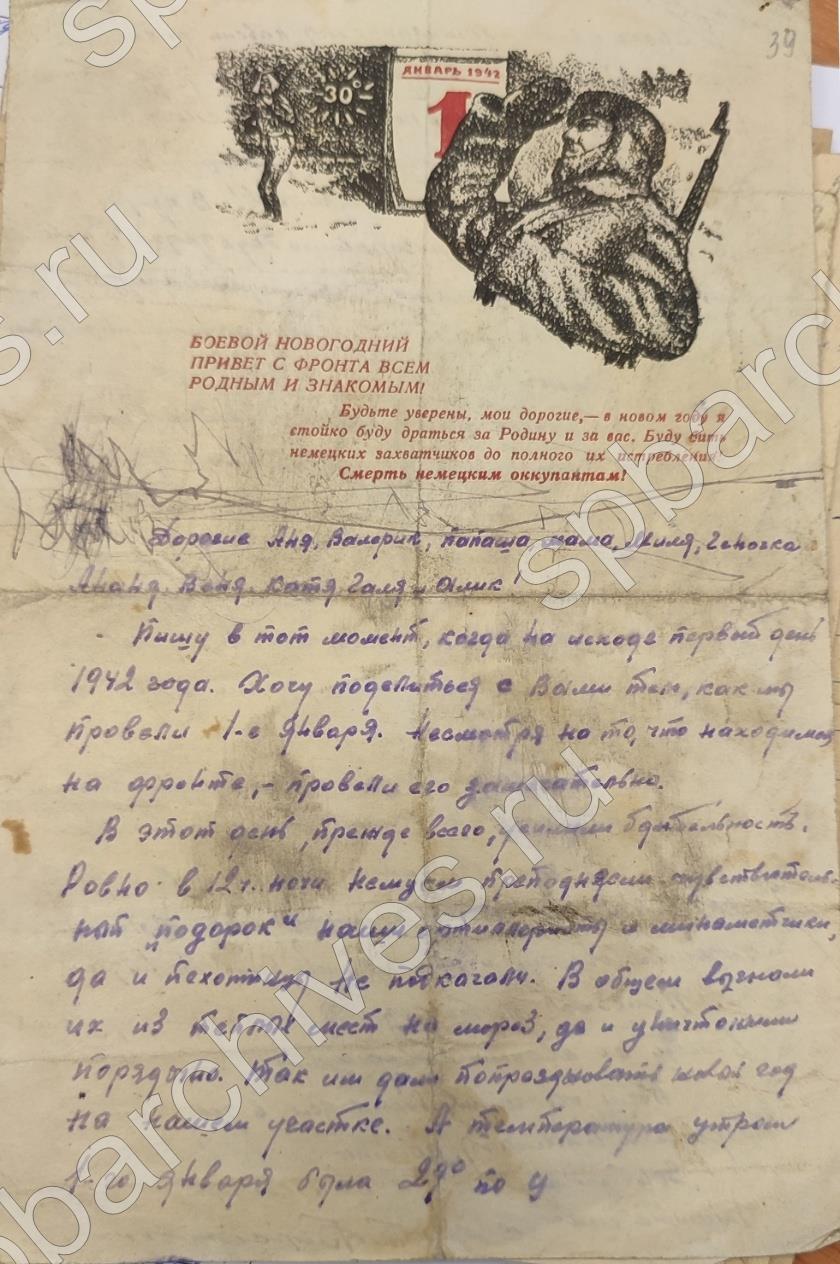 39
ЯНВАРЬ 1942
30°
1
БОЕВОЙ НОВОГОДНИЙ
ПРИВЕТ С ФРОНТА ВСЕМ
РОДНЫМ И ЗНАКОМЫМ!
Будьте уверены, мои дорогие,— в новом году я
стойко буду драться за Родину и за вас. Буду бить
немецких захватчиков до полного их истребления.
Смерть немецким оккупантам!
Дорогие Аня, Валерик, папаша, мама, Миля, Геночка
Веня, Катя, Галя и Алик!
Пишу в тот момент, когда на исходе первый день
1942 года. Хочу поделиться с Вами тем, как мы
провели 1-е января. Несмотря на то, что находимся
на фронте,- провели его замечательно.
В этот день, прежде всего, усилили бдительность.
Ровно в 12 ч. ночи немцам преподнесли чувствитель-
ный "подарок" наши артиллеристы и минометчики,
да и пехотинцы не подкачали. В общем выгнали
их из теплых мест на мороз, да и уничтожили
порядочно. Так им дали попраздновать новый год
на нашем участке. А температура утром
1-го января была 29° по Ц
spbarchives.ru